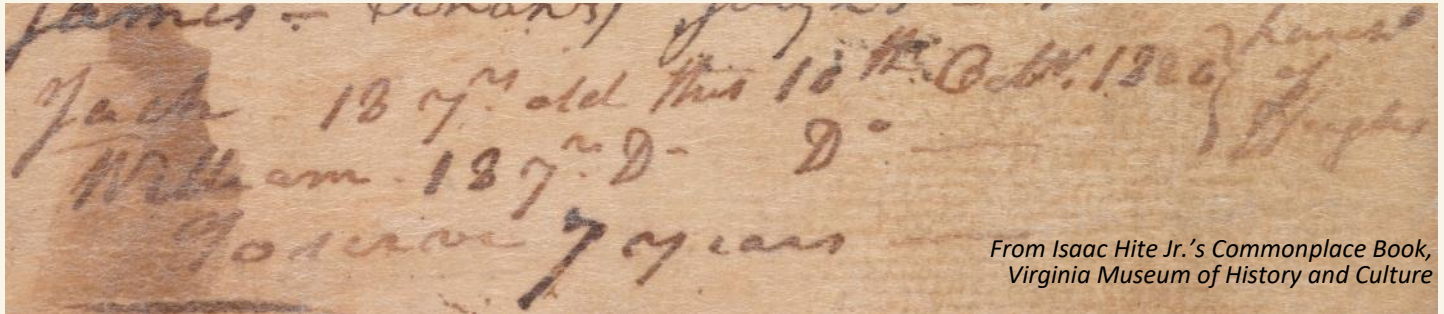 James –
Jack 18 yrs old this 10th Octr. 1820
of
William 18 yrs Do Do
To serve 7 years
From Isaac Hite Jr.'s Commonplace Book,
Virginia Museum of History and Culture